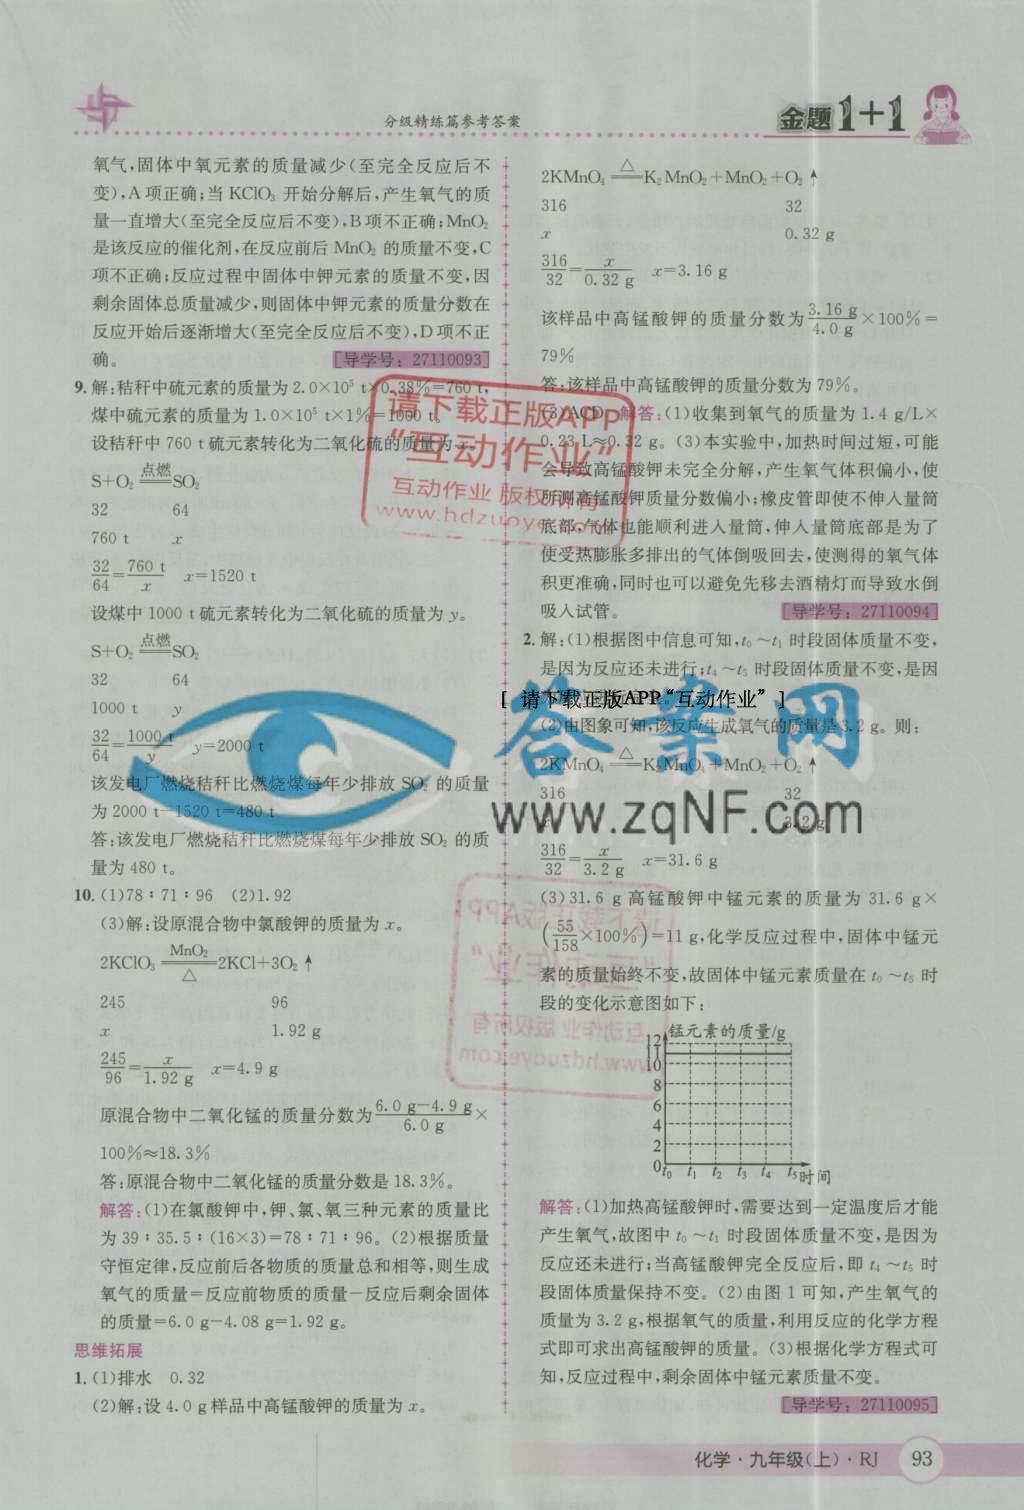 分级精练篇参考答案
金题1+1
氧气,固体中氧元素的质量减少(至完全反应后不
变),A项正确;当 KClO₃ 开始分解后,产生氧气的质
量一直增大(至完全反应后不变),B项不正确;MnO₂
是该反应的催化剂,在反应前后 MnO₂ 的质量不变,C
项不正确;反应过程中固体中钾元素的质量不变,因
剩余固体总质量减少,则固体中钾元素的质量分数在
反应开始后逐渐增大(至完全反应后不变),D项不正
确。 [导学号:27110093]
9.解:秸秆中硫元素的质量为2.0×10⁵ t×0.38%=760 t,
煤中硫元素的质量为1.0×10⁵ t×1%=1000 t。
设秸秆中 760 t硫元素转化为二氧化硫的质量为x。
点燃
S+O₂ ══ SO₂
32 64
760 t x
32/64=760 t/x x=1520 t
设煤中1000 t硫元素转化为二氧化硫的质量为y。
点燃
S+O₂ ══ SO₂
32 64
1000 t y
32/64=1000 t/y y=2000 t
该发电厂燃烧秸秆比燃烧煤每年少排放 SO₂ 的质量
为 2000 t-1520 t=480 t
答:该发电厂燃烧秸秆比燃烧煤每年少排放 SO₂ 的质
量为 480 t。
10.(1)78∶71∶96 (2)1.92
(3)解:设原混合物中氯酸钾的质量为x。
MnO₂
2KClO₃ ══ 2KCl+3O₂↑
△
245 96
x 1.92 g
245/96=x/1.92 g x=4.9 g
原混合物中二氧化锰的质量分数为 6.0 g-4.9 g/6.0 g ×
100%≈18.3%
答:原混合物中二氧化锰的质量分数是18.3%。
解答:(1)在氯酸钾中,钾、氯、氧三种元素的质量比
为 39∶35.5∶(16×3)=78∶71∶96。(2)根据质量
守恒定律,反应前后各物质的质量总和相等,则生成
氧气的质量=反应前物质的质量-反应后剩余固体
的质量=6.0 g-4.08 g=1.92 g。
思维拓展
1.(1)排水 0.32
(2)解:设 4.0 g样品中高锰酸钾的质量为x。
△
2KMnO₄ ══ K₂MnO₄+MnO₂+O₂↑
316 32
x 0.32 g
316/32=x/0.32 g x=3.16 g
该样品中高锰酸钾的质量分数为 3.16 g/4.0 g ×100%=
79%
答:该样品中高锰酸钾的质量分数为79%。
(3)ACD 解答:(1)收集到氧气的质量为 1.4 g/L×
0.23 L≈0.32 g。(3)本实验中,加热时间过短,可能
会导致高锰酸钾未完全分解,产生氧气体积偏小,使
所测高锰酸钾质量分数偏小;橡皮管即使不伸入量筒
底部,气体也能顺利进入量筒,伸入量筒底部是为了
使受热膨胀多排出的气体倒吸回去,使测得的氧气体
积更准确,同时也可以避免先移去酒精灯而导致水倒
吸入试管。 [导学号:27110094]
2.解:(1)根据图中信息可知,t₀~t₁ 时段固体质量不变,
是因为反应还未进行;t₄~t₅ 时段固体质量不变,是因
[ 请下载正版APP“互动作业” ]
(2)由图象可知,该反应生成氧气的质量是3.2 g。则:
△
2KMnO₄ ══ K₂MnO₄+MnO₂+O₂↑
316 32
x 3.2 g
316/32=x/3.2 g x=31.6 g
(3)31.6 g 高锰酸钾中锰元素的质量为 31.6 g×
(55/158×100%)=11 g,化学反应过程中,固体中锰元
素的质量始终不变,故固体中锰元素质量在 t₀~t₅ 时
段的变化示意图如下:
锰元素的质量/g
12
11
10
8
6
4
2
0
t₀ t₁ t₂ t₃ t₄ t₅ 时间
解答:(1)加热高锰酸钾时,需要达到一定温度后才能
产生氧气,故图中 t₀~t₁ 时段固体质量不变,是因为
反应还未进行;当高锰酸钾完全反应后,即 t₄~t₅ 时
段固体质量保持不变。(2)由图1可知,产生氧气的
质量为3.2 g,根据氧气的质量,利用反应的化学方程
式即可求出高锰酸钾的质量。(3)根据化学方程式可
知,反应过程中,剩余固体中锰元素质量不变。
[导学号:27110095]
请下载正版APP
“互动作业”
互动作业 版权所有
www.hdzuoye.com
答案网
www.zqNF.com
请下载正版APP
“互动作业”
互动作业 版权所有
www.hdzuoye.com
化学·九年级(上)·RJ 93